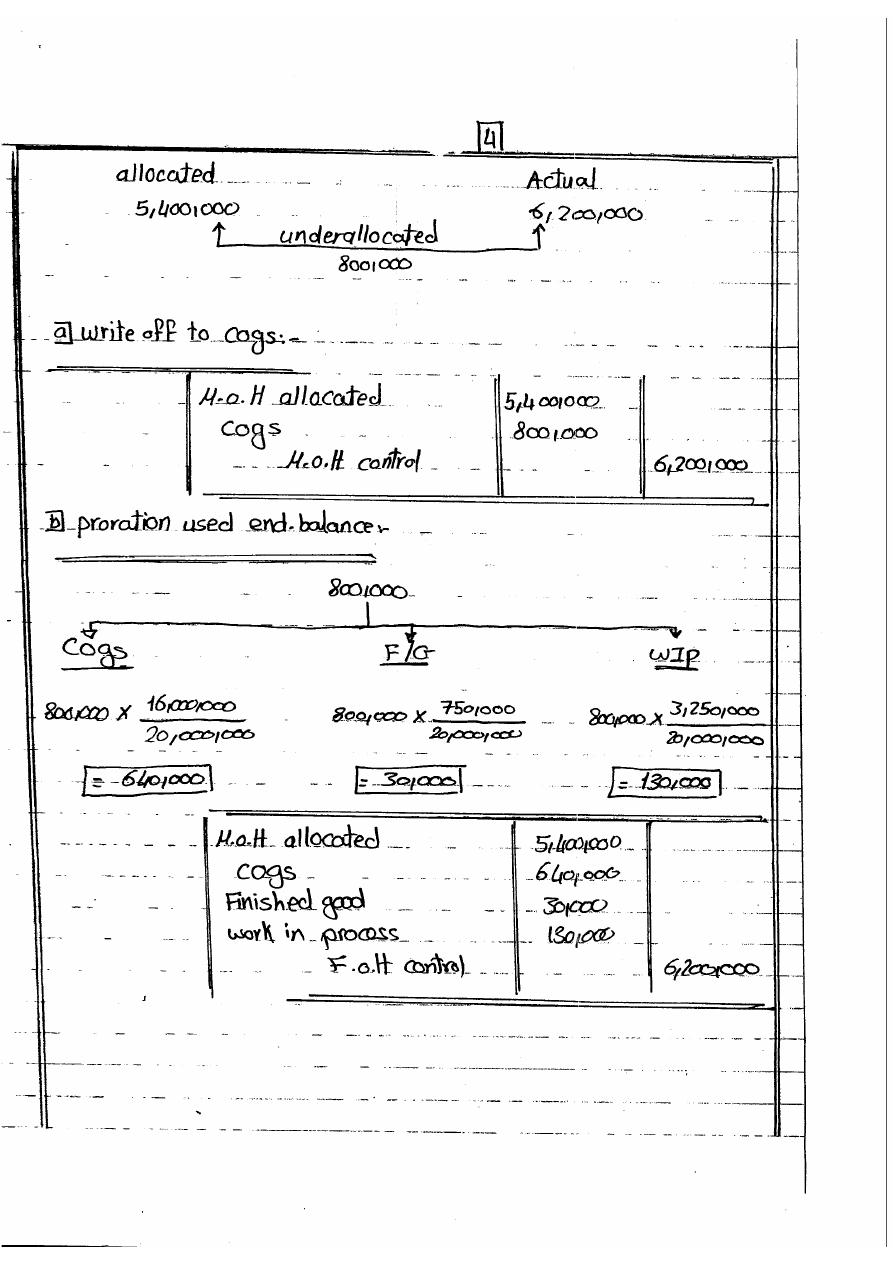 4
allocated Actual
5,400,000 6,200,000
underallocated
800,000
a) write off to cogs:-
M.o.H allocated 5,400,000
cogs 800,000
M.o.H control 6,200,000
b) proration used end.balance:-
800,000
Cogs F/G WIP
800,000 X 16,000,000 / 20,000,000 800,000 X 750,000 / 20,000,000 800,000 X 3,250,000 / 20,000,000
= 640,000 = 30,000 = 130,000
M.o.H allocated 5,400,000
cogs 640,000
Finished good 30,000
work in process 130,000
F.o.H control 6,200,000